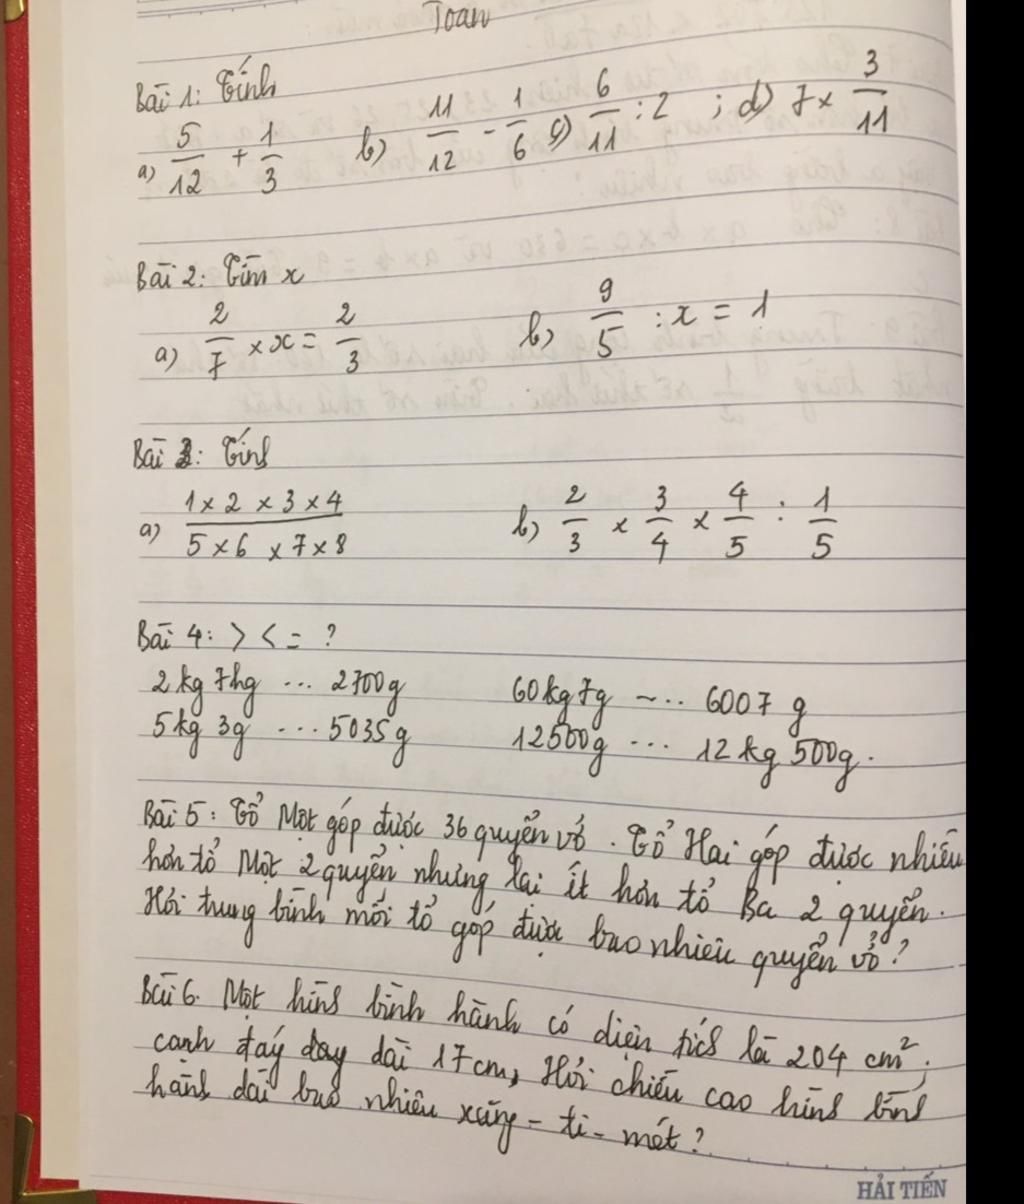 Toán
Bài 1: Tính
a) 5/12 + 1/3 b) 11/12 - 1/6 c) 6/11 : 2 ; d) 7 x 3/11
Bài 2: Tìm x
a) 2/7 x x = 2/3 b) 9/5 : x = 1
Bài 3: Tính
a) 1 x 2 x 3 x 4 / 5 x 6 x 7 x 8 b) 2/3 x 3/4 x 4/5 : 1/5
Bài 4: > < = ?
2kg 7hg ... 2700g 60kg 7g ... 6007 g
5kg 3g ... 5035g 12500g ... 12kg 500g.
Bài 5: Tổ Một góp được 36 quyển vở. Tổ Hai góp được nhiều
hơn tổ Một 2 quyển nhưng lại ít hơn tổ Ba 2 quyển.
Hỏi trung bình mỗi tổ góp được bao nhiêu quyển vở?
Bài 6. Một hình bình hành có diện tích là 204 cm²;
cạnh đáy dài 17cm, Hỏi chiều cao hình bình
hành dài bao nhiêu xăng-ti-mét?
HẢI TIẾN